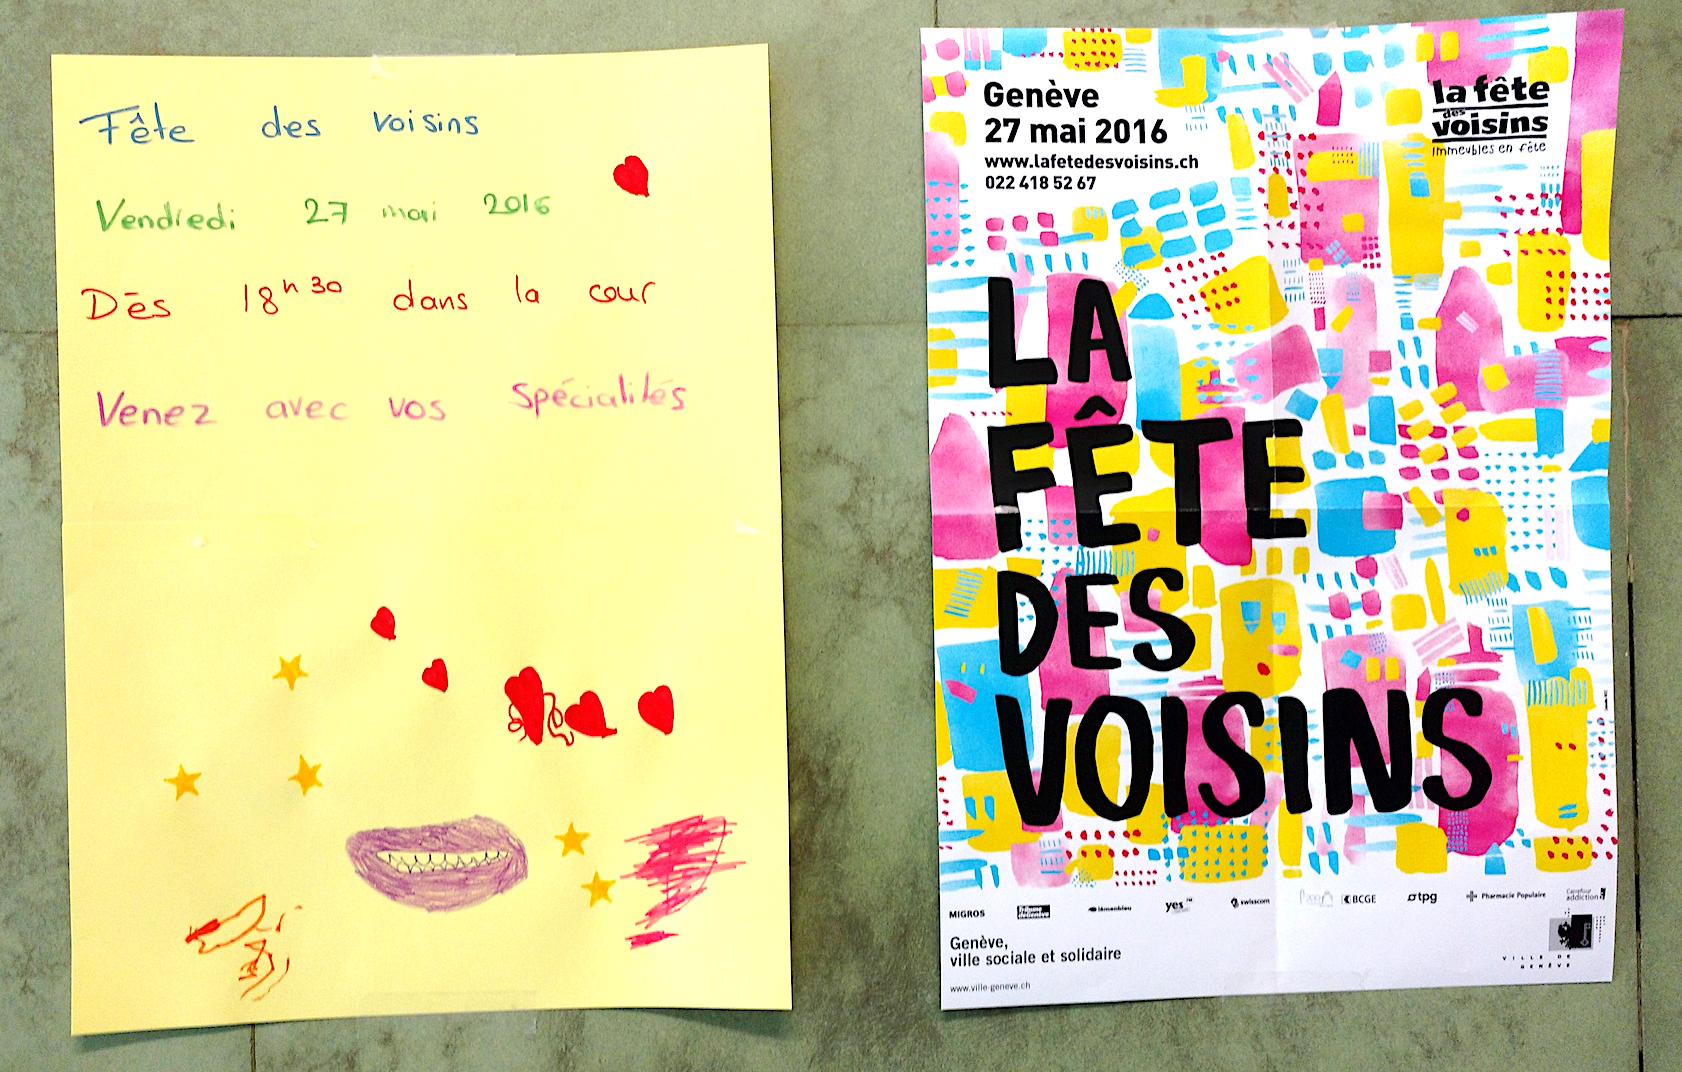 Fête des voisins
Vendredi 27 mai 2016
Dès 18h30 dans la cour
Venez avec vos spécialités
Genève
27 mai 2016
www.lafetedesvoisins.ch
022 418 52 67
la fête
des
voisins
immeubles en fête
LA
FÊTE
DES
VOISINS
MIGROS
lémanbleu
yes
swisscom
BCGE
tpg
Pharmacie Populaire
Carrefour
addiction
Genève,
ville sociale et solidaire
www.ville-geneve.ch
VILLE DE
GENÈVE